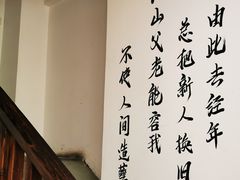 由此去经年
总把新人换旧
山父老能容我
不使人间造